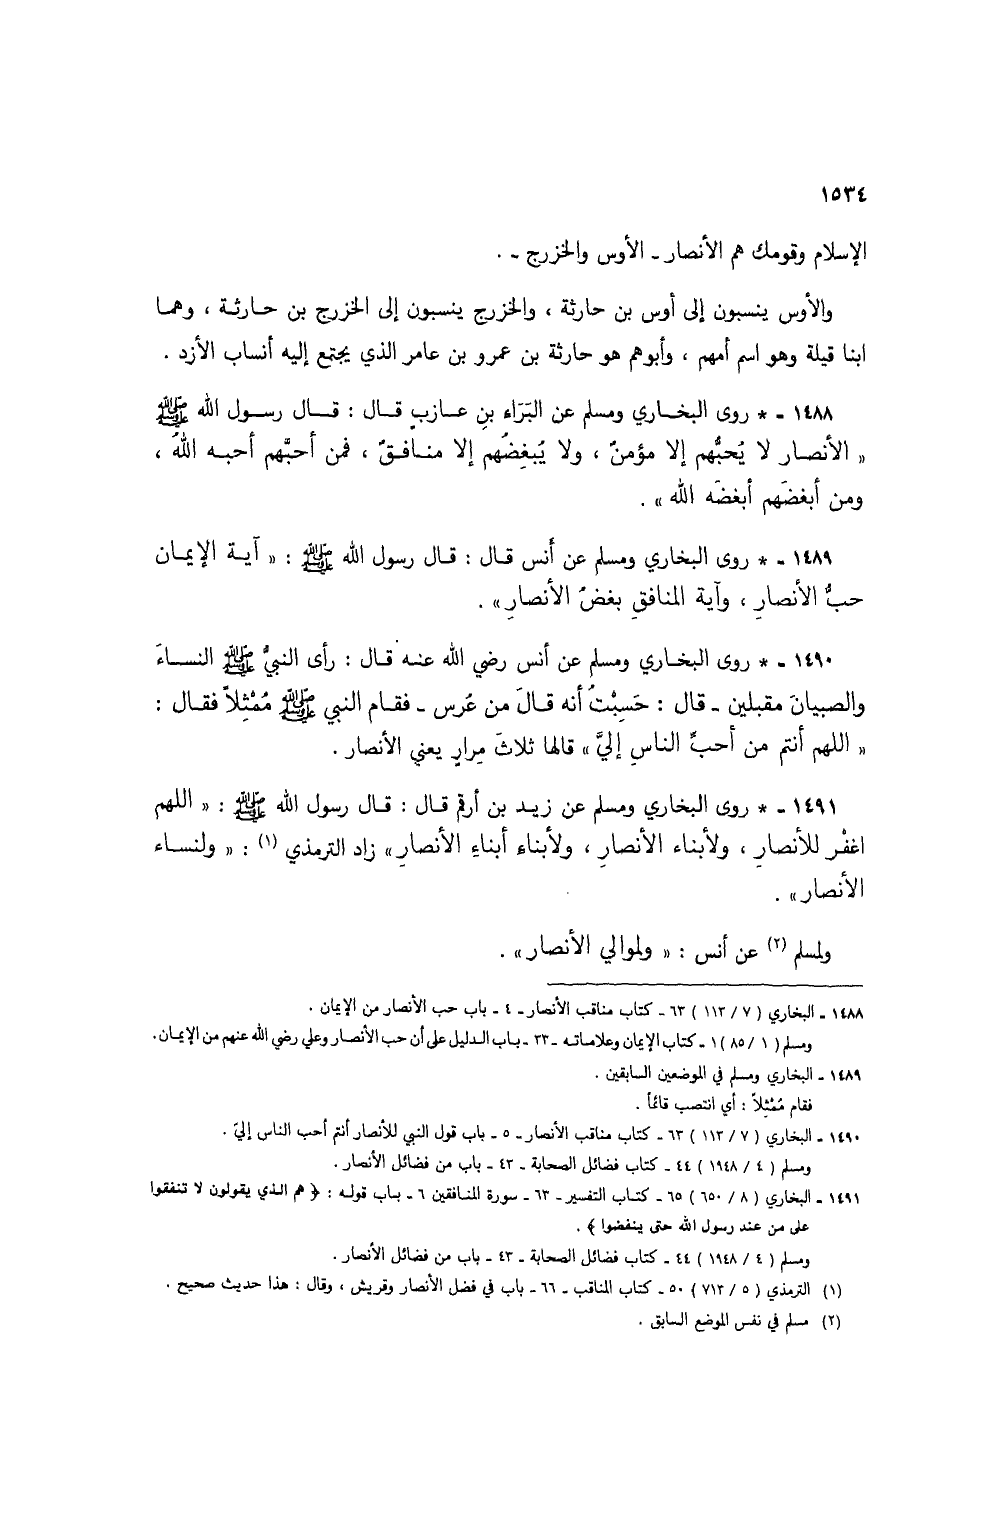 ١٥٣٤
الإسلام وقومك هم الأنصار ـ الأوس والخزرج ـ .
والأوس ينسبون إلى أوس بن حارثة ، والخزرج ينسبون إلى الخزرج بن حارثة ، وهما
ابنا قيلة وهو اسم أمهم ، وأبوهم هو حارثة بن عمرو بن عامر الذي يجتمع إليه أنساب الأزد .
١٤٨٨ ـ * روى البخاري ومسلم عن البَرَاء بنِ عازبٍ قال : قال رسول الله ﷺ
« الأنصار لا يُحبُّهم إلا مؤمنٌ ، ولا يُبغِضُهم إلا منافقٌ ، فمن أحبَّهم أحبه اللهُ ،
ومن أبغضَهم أبغضَه الله » .
١٤٨٩ ـ * روى البخاري ومسلم عن أنس قال : قال رسول الله ﷺ : « آية الإيمان
حبُّ الأنصارِ ، وآية المنافقِ بغضُ الأنصارِ» .
١٤٩٠ ـ * روى البخاري ومسلم عن أنس رضي الله عنه قال : رأى النبيُّ ﷺ النساءَ
والصبيانَ مقبلين ـ قال : حَسِبْتُ أنه قالَ من عُرس ـ فقام النبي ﷺ مُمْثِلاً فقال :
« اللهم أنتم من أحبِّ الناسِ إليَّ » قالها ثلاثَ مِرارٍ يعني الأنصار .
١٤٩١ ـ * روى البخاري ومسلم عن زيد بن أرقم قال : قال رسول الله ﷺ : « اللهم
اغفْر للأنصارِ ، ولأبناء الأنصارِ ، ولأبناء أبناءِ الأنصارِ» زاد الترمذي (١) : « ولنساء
الأنصار » .
ولمسلم (٢) عن أنس : « ولموالي الأنصار » .
١٤٨٨ ـ البخاري ( ٧ / ١١٣ ) ٦٣ ـ كتاب مناقب الأنصار ـ ٤ ـ باب حب الأنصار من الإيمان .
ومسلم ( ١ / ٨٥ ) ١ ـ كتاب الإيمان وعلاماته ـ ٣٣ ـ باب الدليل على أن حب الأنصار وعلي رضي الله عنهم من الإيمان .
١٤٨٩ ـ البخاري ومسلم في الموضعين السابقين .
فقام مُمْثِلاً : أي انتصب قائماً .
١٤٩٠ ـ البخاري ( ٧ / ١١٣ ) ٦٣ ـ كتاب مناقب الأنصار ـ ٥ ـ باب قول النبي للأنصار أنتم أحب الناس إليّ .
ومسلم ( ٤ / ١٩٤٨ ) ٤٤ ـ كتاب فضائل الصحابة ـ ٤٣ ـ باب من فضائل الأنصار .
١٤٩١ ـ البخاري ( ٨ / ٦٥٠ ) ٦٥ ـ كتاب التفسير ـ ٦٣ ـ سورة المنافقين ٦ ـ باب قوله : ﴿ هم الذي يقولون لا تنفقوا
على من عند رسول الله حتى ينفضوا ﴾ .
ومسلم ( ٤ / ١٩٤٨ ) ٤٤ ـ كتاب فضائل الصحابة ـ ٤٣ ـ باب من فضائل الأنصار .
(١) الترمذي ( ٥ / ٧١٣ ) ٥٠ ـ كتاب المناقب ـ ٦٦ ـ باب في فضل الأنصار وقريش ، وقال : هذا حديث صحيح .
(٢) مسلم في نفس الموضع السابق .